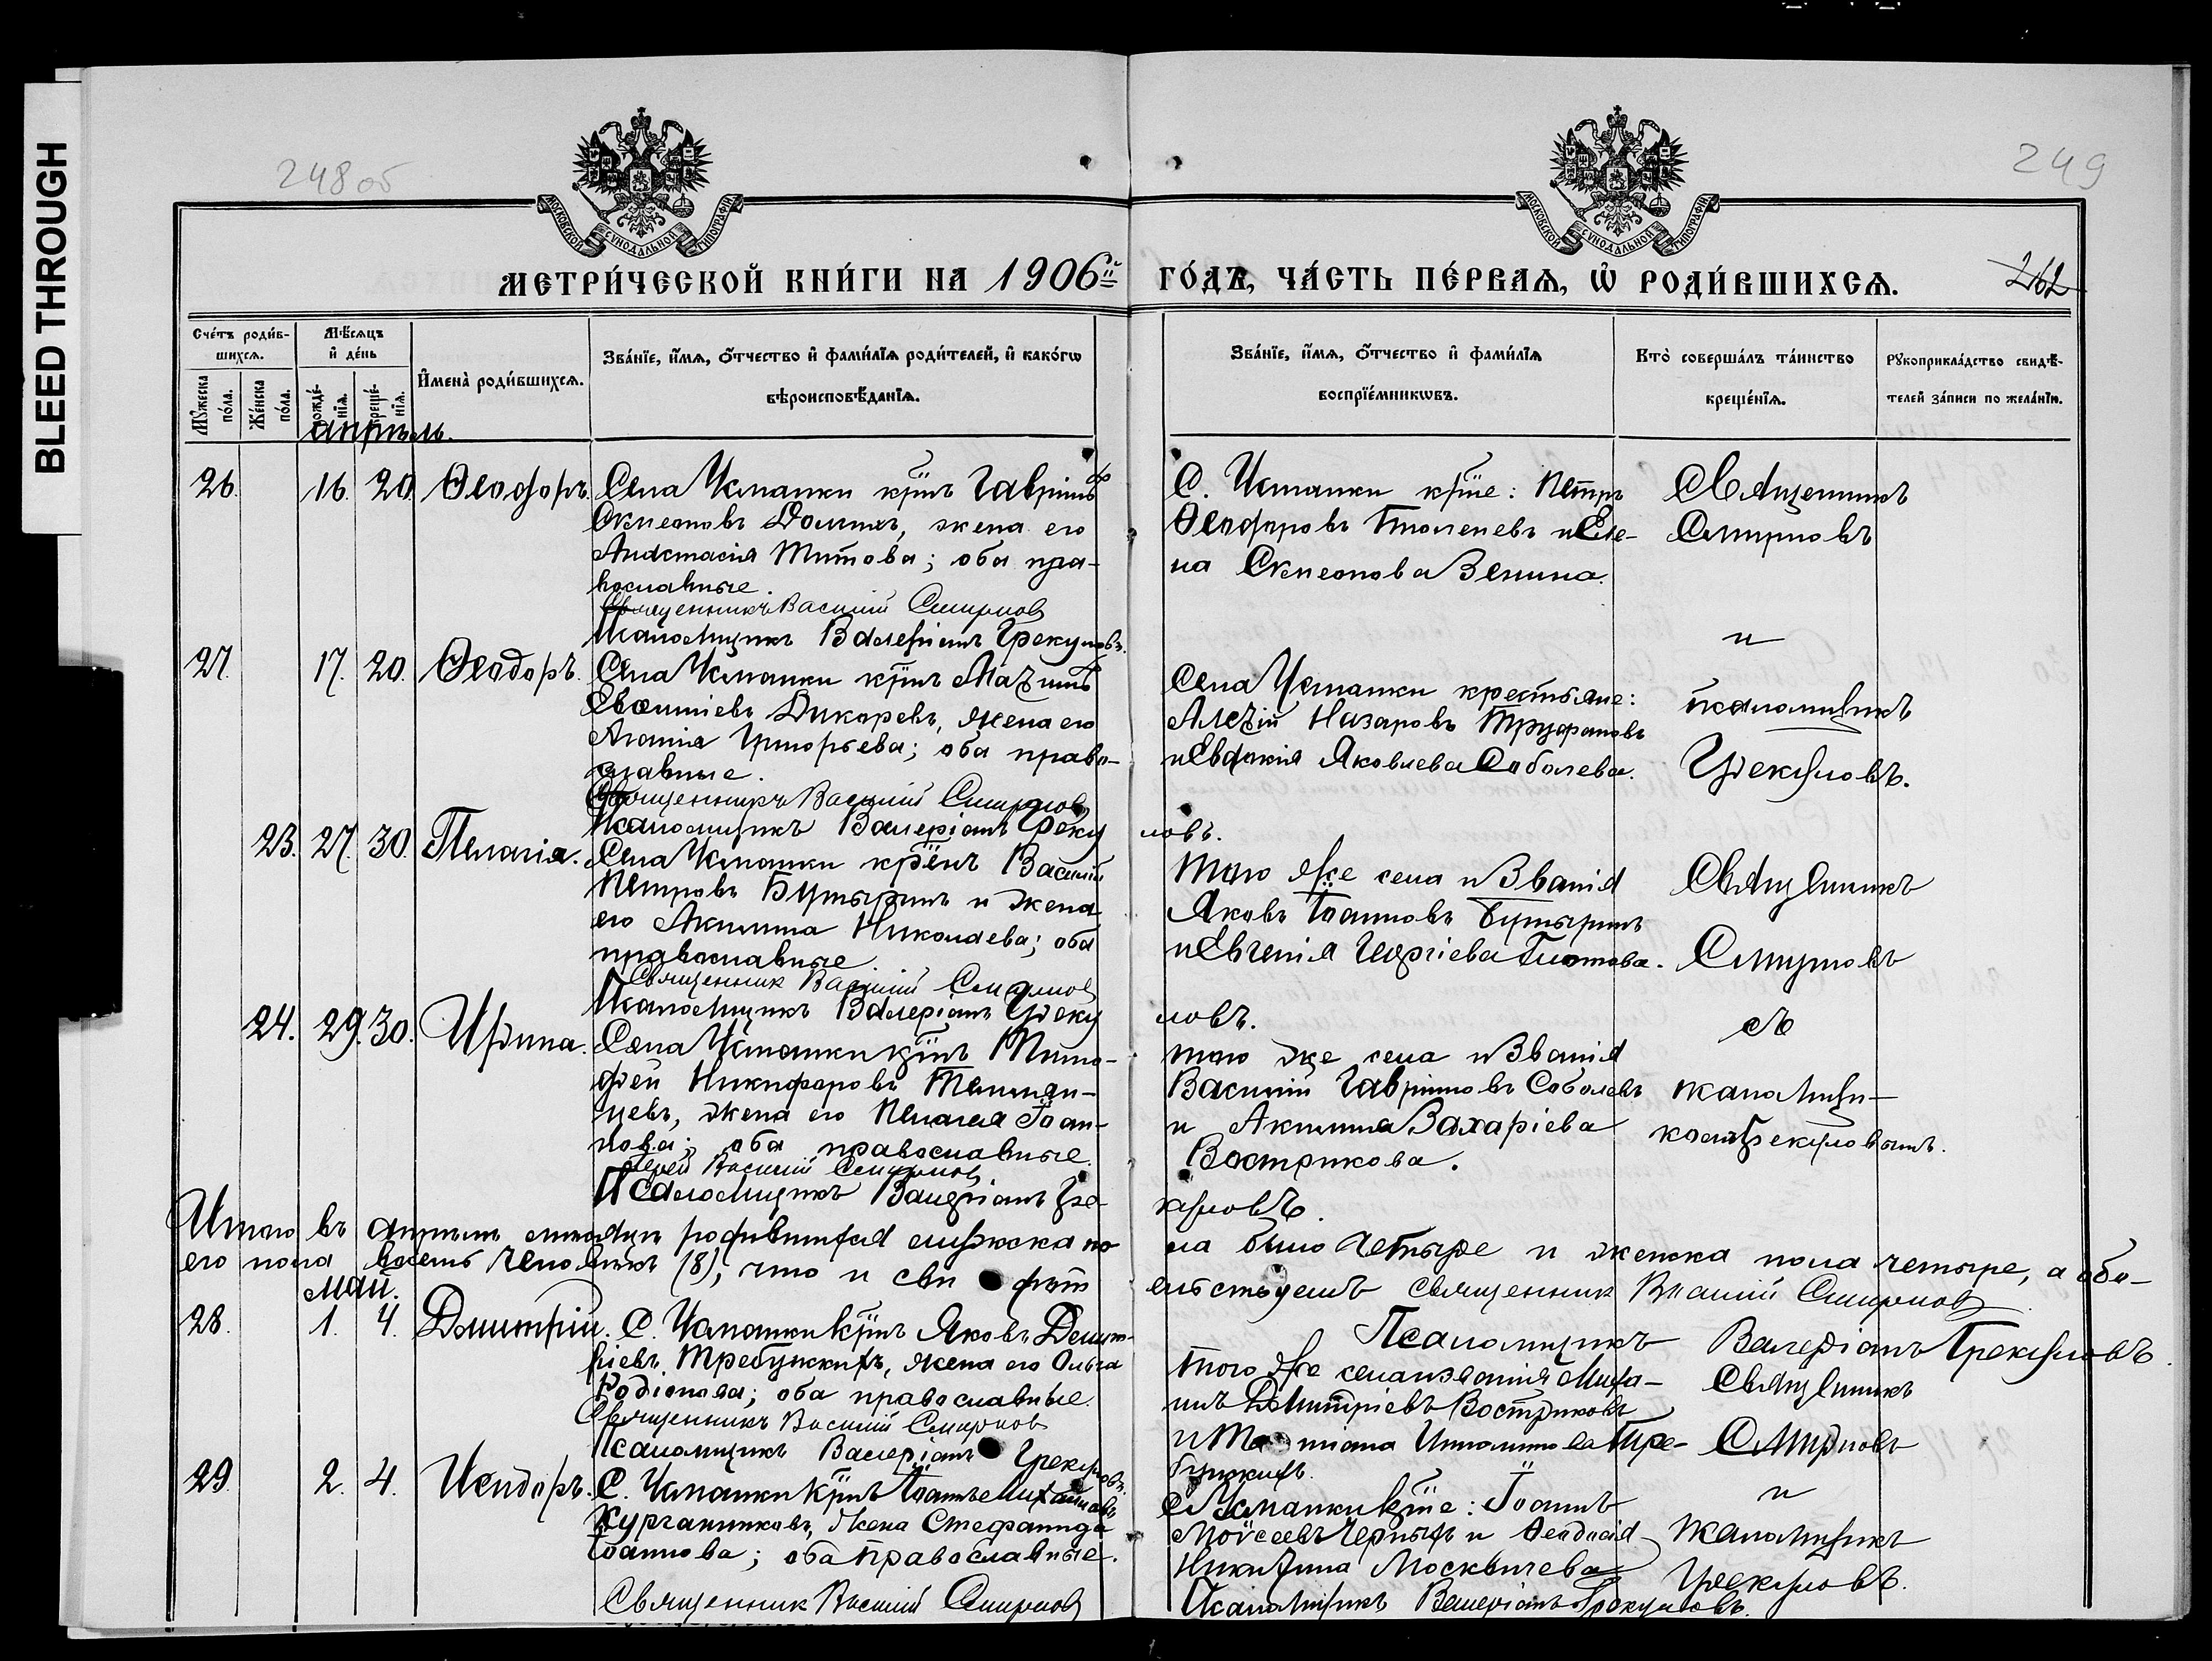 BLEED THROUGH
248 об
249
МОСКОВСКОЙ СѴНОДАЛЬНОЙ ТИПОГРАФІИ
МОСКОВСКОЙ СѴНОДАЛЬНОЙ ТИПОГРАФІИ
МЕТРИ́ЧЕСКОЙ КНИ́ГИ НА 1906й ГО́ДЪ, ЧА́СТЬ ПЕ́РВАѦ, Ѡ҆ РОДИ́ВШИХСѦ.
262
Сче́тъ роди́в-
шихсѧ.
Мѣ́сѧцъ
и҆ де́нь
Мꙋ́жеска
по́ла.
Же́нска
по́ла.
рожде́-
нїѧ.
креще́-
нїѧ.
И҆мена̀ роди́вшихсѧ.
Зва́нїе, и҆́мѧ, ѻ҆́тчество и҆ фами́лїѧ роди́телей, и҆ како́гѡ
вѣроисповѣ́данїѧ.
Зва́нїе, и҆́мѧ, ѻ҆́тчество и҆ фами́лїѧ
воспрїе́мникѡвъ.
Кто̀ соверша́лъ та́инство
креще́нїѧ.
Рꙋкоприкла́дство свидѣ́-
телей за́писи по жела́нїю.
апрѣль.
26. 16. 20. Ѳеодоръ. Села Усманки крїнъ Гавріилъ
Симеоновъ Долгихъ, жена его
Анастасія Титова; оба пра-
вославные.
Священникъ Василій Смирновъ
Псаломщикъ Валеріанъ Грекуловъ.
С. Усманки крїне: Петръ
Ѳеодоровъ и Еле-
на Симеонова Зенина.
Священникъ
Смирновъ
и
27. 17. 20. Ѳеодоръ. Села Усманки крїнъ Максимъ
Евѳиміевъ Дикаревъ, жена его
Агапія Григорьева; оба право-
славные.
Священникъ Василій Смирновъ
Псаломщикъ Валеріанъ Греку
ловъ.
Села Усманки крестьяне:
Алексій Назаровъ Труфановъ
и Евдокія Яковлева Соболева.
псаломщикъ
Грекуловъ.
23. 27. 30. Пелагія. Села Усманки крїнъ Василій
Петровъ Бутыринъ и жена
его Акилина Николаева; оба
православные.
Священник Василій Смирнов
Псаломщикъ Валеріанъ Греку
ловъ.
Того же села и званія
Яковъ Іоанновъ Бутыринъ
и Евгенія Георгіева
Священникъ
Смирновъ
съ
24. 29. 30. Ирина. Села Усманки крїнъ Тимо-
фей Никифоровъ
жена его Пелагея Іоан-
нова; оба православные.
Іерей Василій Смирнов
Псаломщикъ Валеріанъ Гре-
куловъ.
того же села и званія
Василій Гавріиловъ Соболевъ
и Акилина Захаріева
Вострикова.
псаломщи-
комъ Грекуловымъ.
Итого въ апрѣлѣ мѣсяцѣ родившихся мужска по-
ла было четыре и женска пола четыре, а обо-
его пола восемь человѣкъ (8), что и сви дѣт
ельствуемъ Священник Василій Смирнов
Псаломщикъ Валеріанъ Грекуловъ.
май.
28. 1. 4. Димитрій. С. Усманки крїнъ Яковъ Димит-
ріевъ Требунскихъ, жена его Ольга
Родіонова; оба православные.
Священникъ Василій Смирнов
Псаломщикъ Валеріанъ Грекуловъ.
Того же села и званія Миха-
илъ Димитріевъ Востриковъ
и Татіана Ипполитова Тре-
бунскихъ.
Священникъ
Смирновъ
и
29. 2. 4. Исидоръ. С. Усманки крїнъ Іоаннъ Михайловъ
Курганниковъ, жена Стефанида
Іоаннова; оба православные.
Священник Василій Смирнов
С. Усманки крїне: Іоаннъ
Моѵсеевъ Черныхъ и Ѳеодосія
Никитина Москвичева
Псаломщикъ Валеріанъ Грекуловъ.
псаломщикъ
Грекуловъ.